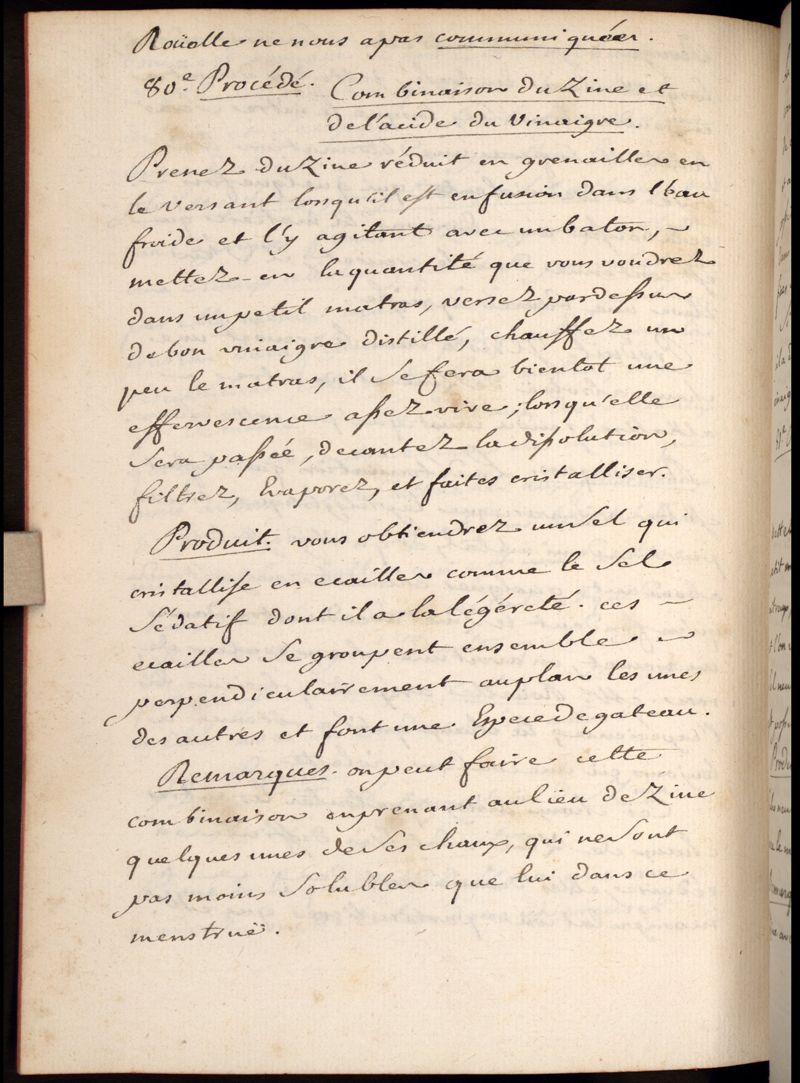 Roüolle ne nous a pas communiquées.
80e. Procédé. Combinaison du Zinc et
de l'acide du Vinaigre.
Prenez du Zinc réduit en grenailles en
le versant lorsqu'il est en fusion dans l'eau
froide et l'y agitant avec un baton, ~
mettez-en la quantité que vous voudrez
dans un petit matras, versez pardessus
de bon vinaigre distillé, chauffez un
peu le matras, il se fera bientot une
effervescence assez vive; lorsqu'elle
sera passée, decantez la dissolution,
filtrez, Evaporez, et faites cristalliser.
Produit. vous obtiendrez un sel qui
cristallise en ecailles comme le sel
sédatif dont il a la légéreté. ces ~
ecailles se groupent ensemble ~
perpendiculairement au plan les unes
des autres et font une Espece de gateau.
Remarques. on peut faire cette
combinaison en prenant au lieu de Zinc
quelques unes de ses chaux, qui ne sont
pas moins solubles que lui dans ce
menstruë.